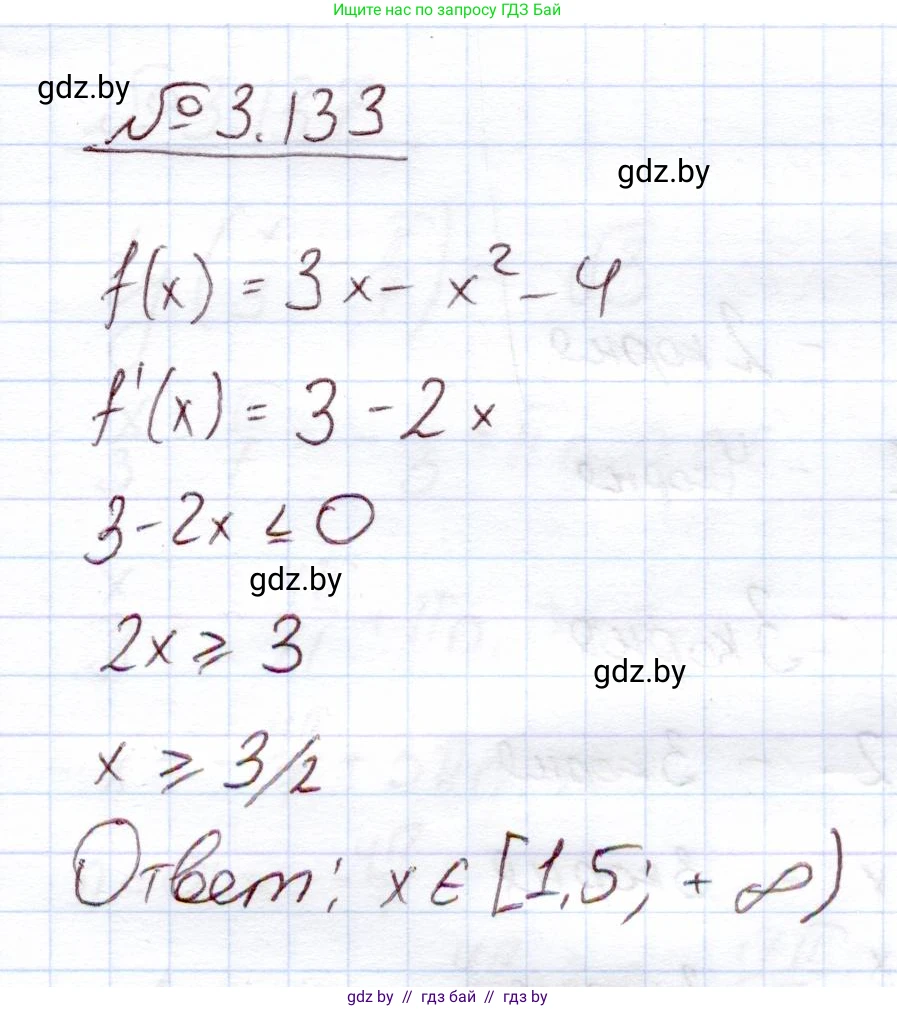 Ищите нас по запросу ГДЗ Бай
gdz.by
№ 3.133
gdz.by
f(x) = 3x - x² - 4
f'(x) = 3 - 2x
3 - 2x ≤ 0
gdz.by
2x ⩾ 3
gdz.by
x ⩾ 3/2
Ответ: x ∈ [1,5; +∞)
gdz.by // гдз бай // гдз by